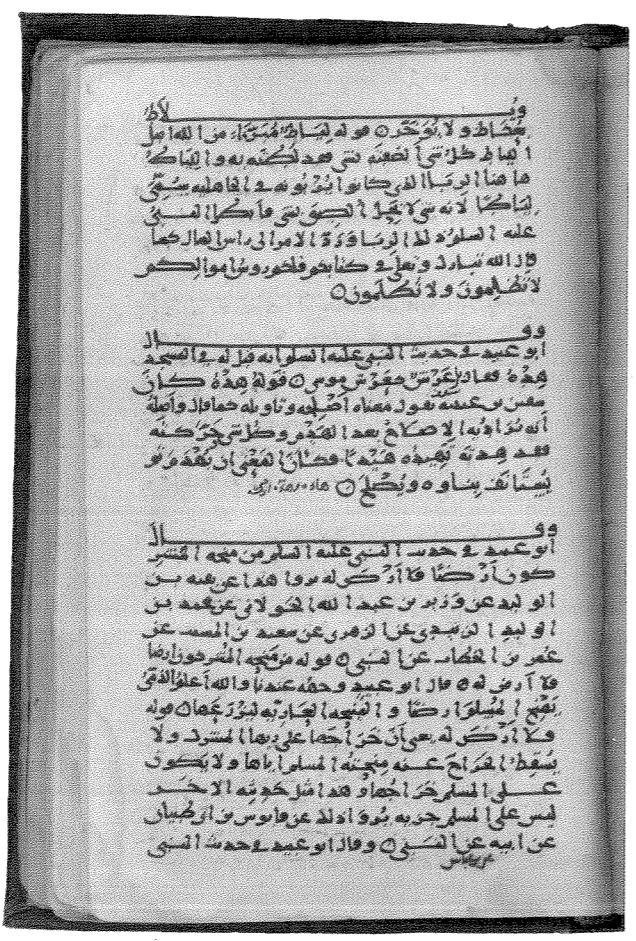 ويُـــــــــــلاط
ولا يُوَخَّر قوله لِيَاط مُبَرَّأ من الله اصل
اللياط كل شي ألصقته بشي فقد لُطْتَه به واللياط
ها هنا الربا الذي كانوا يُرْبُونه في الجاهلية سُمِّيَ
لِيَاطًا لانه شي لا يَحِلّ أُلصِقَ بشي فأبطل النبي
عليه السلم ذلك الربا ورَدَّ الامر الى راس المال كما
قال الله تبارك وتعلى في كتابه فلكم رؤس اموالكم
لا تَظْلِمون ولا تُظْلَمون
وقـــــــــــال
ابو عبيد في حديث النبي عليه السلم انه قيل له في المسجد
هِدْهُ فقال عَرْش كعَرْش موسى قوله هِدْهُ كان
سفين بن عيينة يقول معناه أصْلِحه وتاويله كما قال واصله
أنه يُرَادُ به الإصلاحُ بعد الهَدْم وكل شي حَرَّكتَه
فقد هِدتَه تَهِيده هَيْدًا فكأنّ المَعْنَى ان يُهْدَم ثم
يُستَأنَف بِناؤه ويُصْلَح
وقـــــــــــال
ابو عبيد في حديث النبي عليه السلم من منحه المشر
كون أرْضًا فلا أرْضَ له يروا هذا عن بقية بن
الوليد عن وزير بن عبد الله الخولاني عن محمد بن
الوليد الزبيدي عن الزهري عن سعيد بن المسيب عن
عُمر بن الخطاب عن النبي قوله من مَنَحه المُشْرِكون ارضا
فلا أرض له قال ابو عبيد وجهه عندنا والله أعلم الذمّيُّ
يَمْنَح المُسلمَ ارضًا والمَنِيحة العارية ليَزْرَعها قوله
فلا أرْضَ له يعني أنّ خَرَاجَها على ربها المشرك ولا
يُسقِط الخراجَ عنه مِنْحتُه المسلمَ اياها ولا يكون
على المسلم خَرَاجُها وهذا مثل حديثه الاخر
ليس على المسلم جزيه يُروَى ذلك عن قابوس بن ابي ظبيان
عن ابيه عن النبي وقال ابو عبيد في حديث النبي
عن ابن عباس